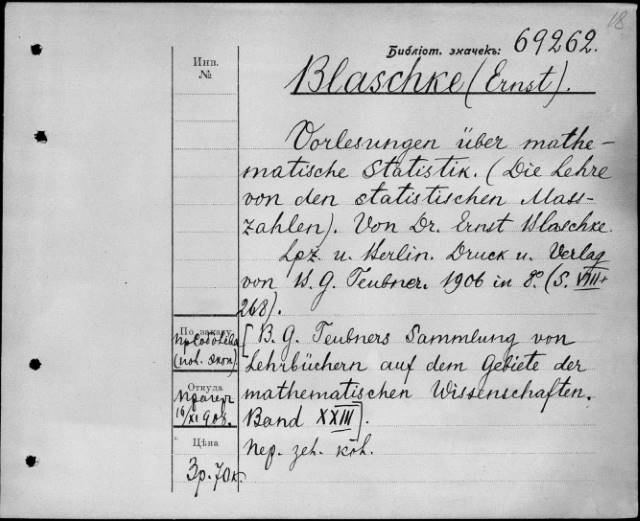 18
Библіот. значекъ: 69262.
Инв.
№
Blaschke (Ernst).
Vorlesungen über mathe-
matische Statistik. (Die Lehre
von den statistischen Mass-
zahlen). Von Dr. Ernst Blaschke.
Lpz. u. Berlin. Druck u. Verlag
von B. G. Teubner. 1906 in 8º. (S. VIII+
268).
По заказу
(пов. экон).
[B. G. Teubners Sammlung von
Lehrbüchern auf dem Gebiete der
mathematischen Wissenschaften.
Band XXIII].
Откуда
16/XI 908.
Цѣна
3р. 70к.